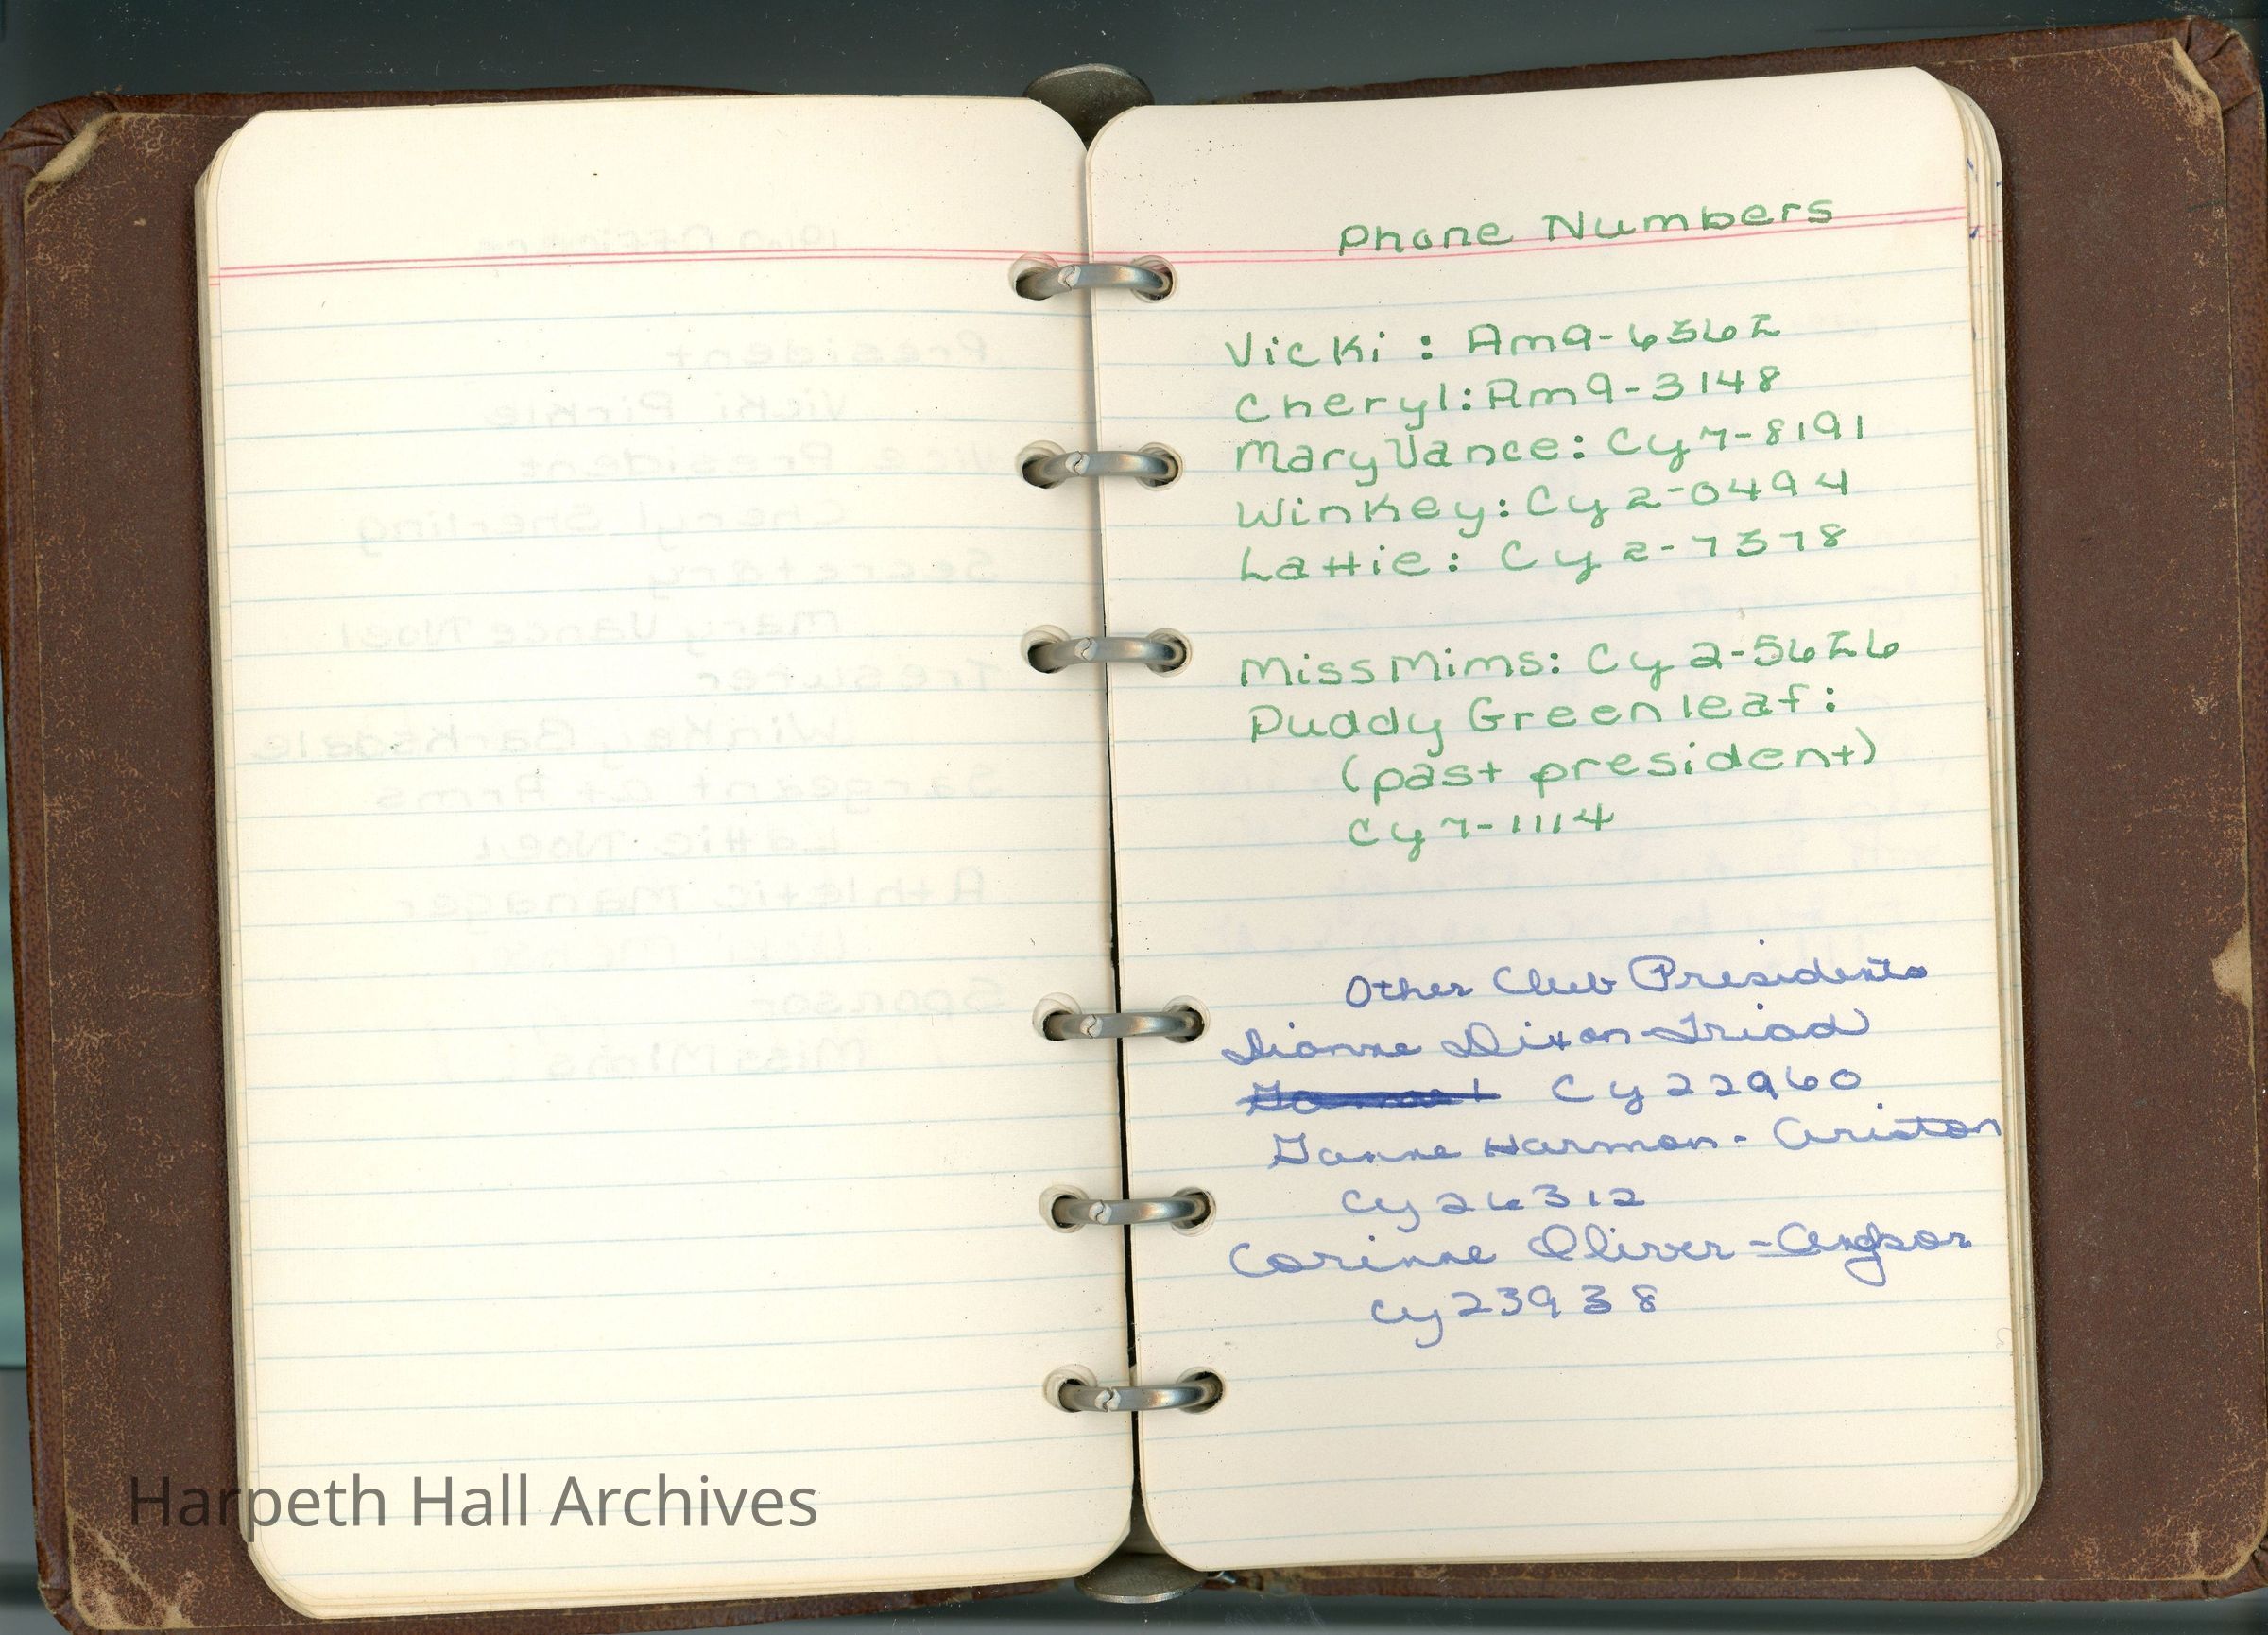 Phone Numbers
Vicki : Am9-6362
Cheryl: Am9-3148
Mary Vance: Cy 7-8191
Winkey: Cy 2-0494
Lattie: Cy 2-7378
Miss Mims: Cy 2-5626
Puddy Greenleaf:
(past president)
Cy 7-1114
Other Club Presidents
Dianne Dixon-Triad
Cy 22960
Harmon - Ariston
Cy 26312
Corinne Oliver - Angkor
Cy 23938
Harpeth Hall Archives